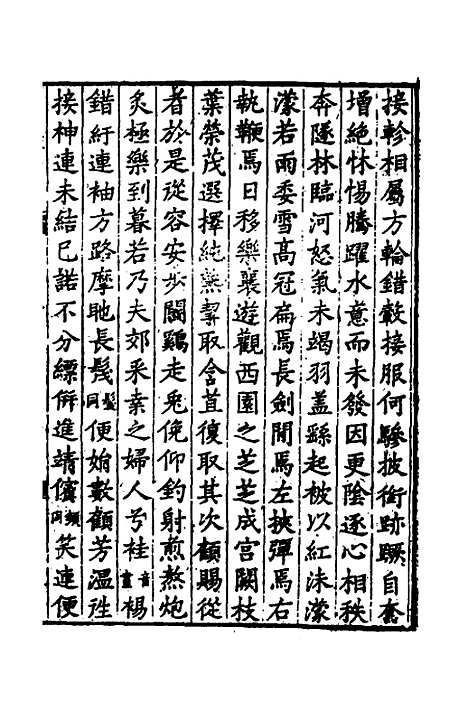 接軫相屬方輪錯轂接服何驂披銜跡蹶自奮
增絶怵惕騰躍水意而未發因更隂逐心相秩
奔隧林臨河怒氣未竭羽蓋繇起被以紅沬濛
濛若雨委雪髙冠扁焉長劍閒焉左挾彈焉右
執鞭焉日移樂衰遊觀西園之芝芝成宫闕枝
葉榮茂選擇純熟挈取含苴復取其次顧賜従
者於是従容安步鬭鷄走兎俛仰釣射煎熬炮
炙極樂到暮若乃夫郊采桑之婦人兮桂音畫裼
錯紆連袖方路摩𨈓長髪同髮便姍數顧芳温往
接神連未結已諾不分縹倂進靖儐同嬪笑連便